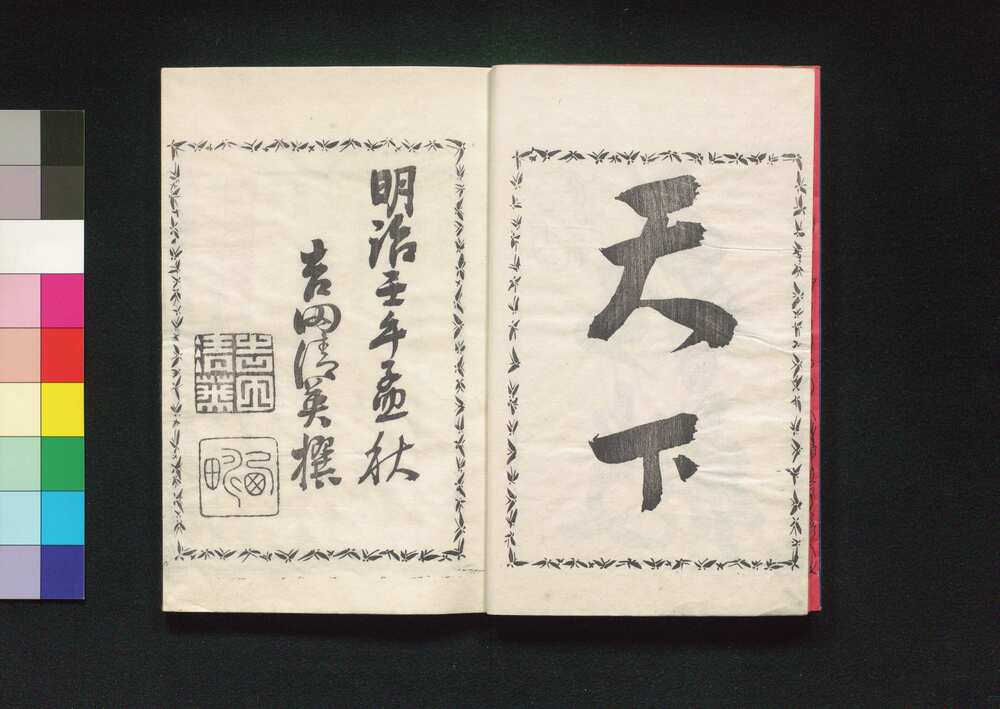 天下
明治壬午孟秋
吉田清英撰
吉田清英